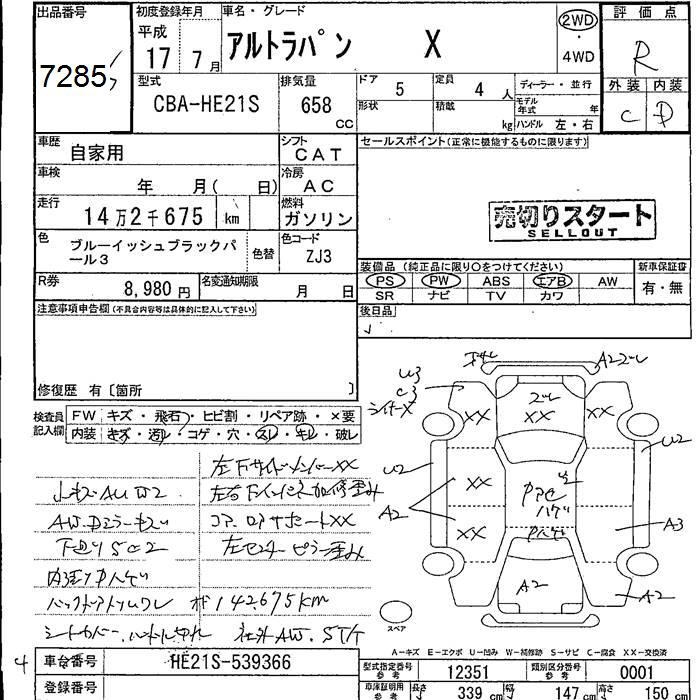 出品番号
7285
初度登録年月
平成
17 7月
車名・グレード
アルトラパン X
2WD
・
4WD
評価点
R
外装 内装
C D
型式
CBA-HE21S
排気量
658
CC
ドア 5
定員 4 人
形状
積載
kg
ディーラー・並行
モデル年式 年
ハンドル 左・右
車歴
自家用
シフト
CAT
車検
年 月( 日)
冷房
AC
走行
14万2千675 km
燃料
ガソリン
色
ブルーイッシュブラックパ
ール3
色替
色コード
ZJ3
R券
8,980円
名変通知期限
月 日
セールスポイント(正常に機能するものに限ります)
売切りスタート
SELLOUT
装備品 (純正品に限り○をつけてください)
PS PW ABS エアB AW
SR ナビ TV カワ
新車保証書
有・無
後日品
注意事項申告欄(不具合内容等は具体的に記入して下さい)
修復歴 有〔箇所 〕
検査員
記入欄
FW キズ・飛石・ヒビ割・リペア跡・×要
内装 キズ・汚レ・コゲ・穴・スレ・キレ・破レ
左下サイドメンバーXX
AW.Dミラーキズ
コア.ロアサポートXX
下廻りSC2
左センターピラー歪み
142675km
シートカバー.ハンドル
社外AW.
U3
C3
XX
XX
XX
A22
U2
U2
A2
XX
XX
A3
A2
A2
スペア
A-キズ E-エクボ U-凹み W-補修跡 S-サビ C-腐食 XX-交換済
4
車台番号
HE21S-539366
登録番号
型式指定番号
参考
12351
類別区分番号
参考
0001
車庫証明用
参考
長さ 339 cm
幅 147 cm
高さ 150 cm